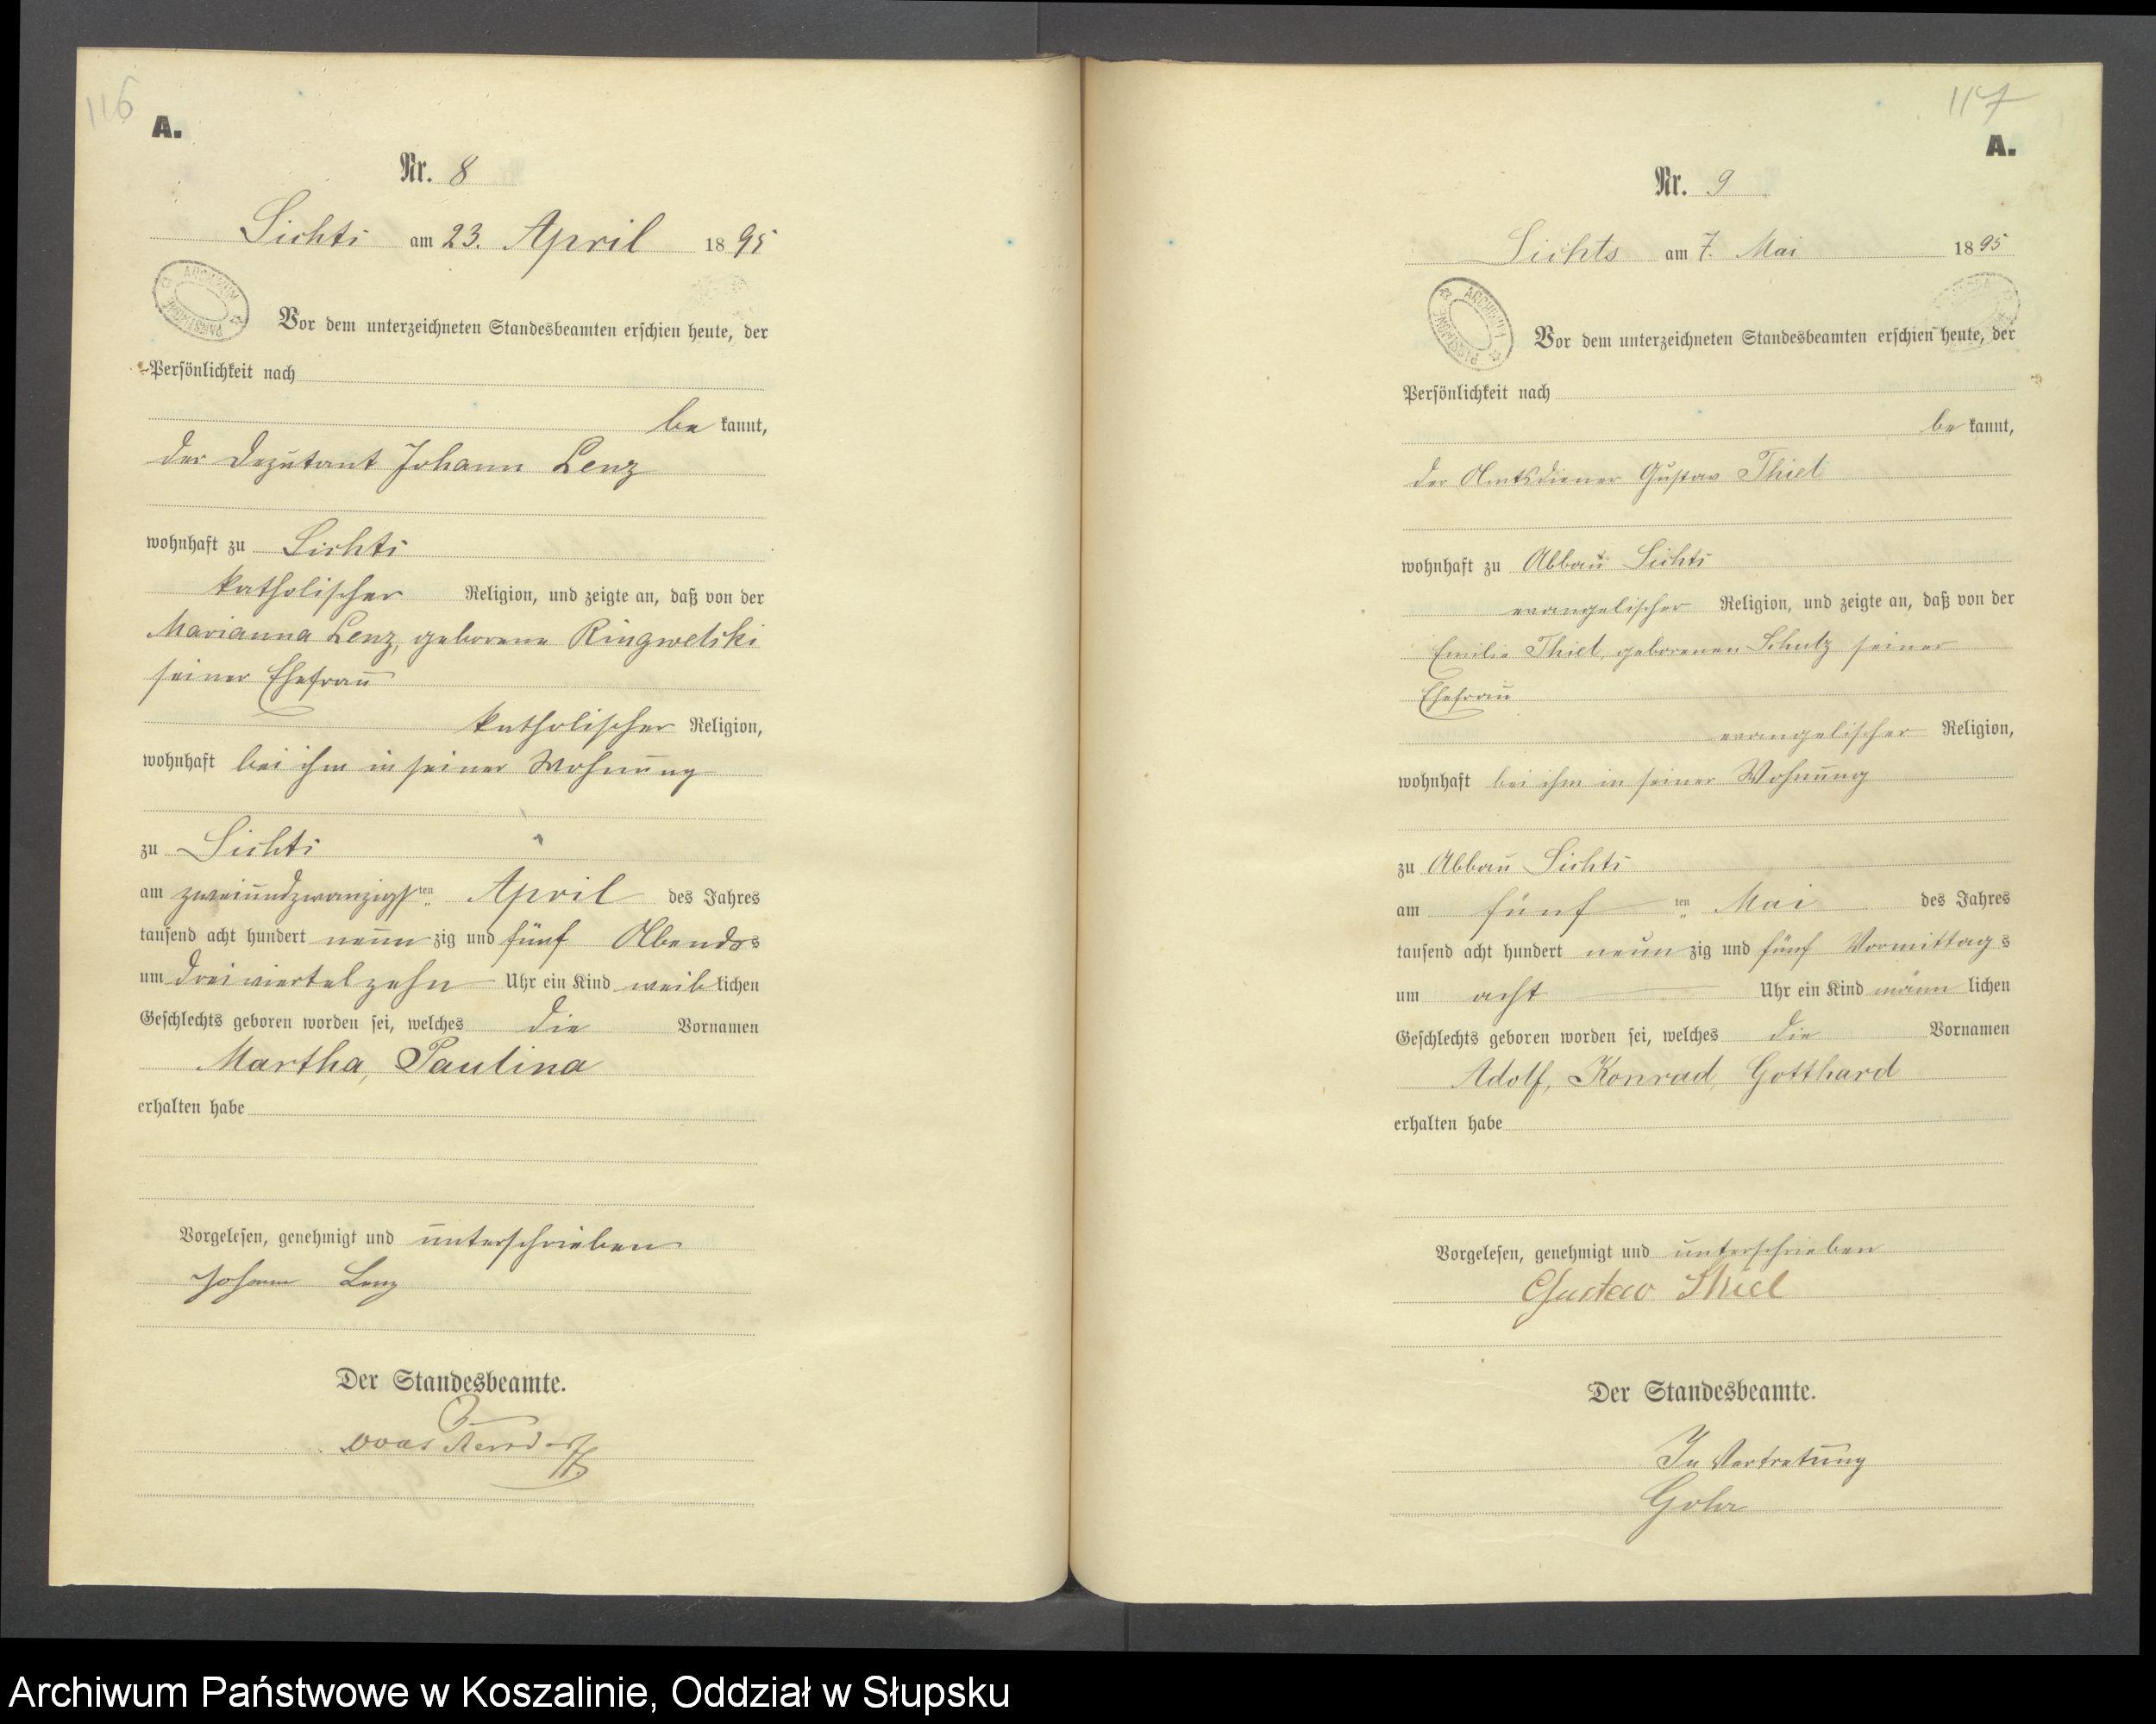 116
A.
Nr. 8
Lichts am 23. April 1895
ARCHIWUM PAŃSTWOWE
Vor dem unterzeichneten Standesbeamten erschien heute, der
Persönlichkeit nach
be kannt,
der Deputant Johann Lenz
wohnhaft zu Lichts
katholischer Religion, und zeigte an, daß von der
Marianna Lenz, geborene Ringwelski
seiner Ehefrau
katholischer Religion,
wohnhaft bei ihm in seiner Wohnung
zu Lichts
am zweiundzwanzigsten April des Jahres
tausend acht hundert neunzig und fünf Abends
um dreiviertelzehn Uhr ein Kind weiblichen
Geschlechts geboren worden sei, welches die Vornamen
Martha, Paulina
erhalten habe
Vorgelesen, genehmigt und unterschrieben
Johann Lenz
Der Standesbeamte.
117
A.
Nr. 9
Lichts am 7. Mai 1895
ARCHIWUM PAŃSTWOWE
Vor dem unterzeichneten Standesbeamten erschien heute, der
Persönlichkeit nach
be kannt,
der Amtsdiener Gustav Thiel
wohnhaft zu Abbau Lichts
evangelischer Religion, und zeigte an, daß von der
Emilie Thiel, geborenen Schulz seiner
Ehefrau
evangelischer Religion,
wohnhaft bei ihm in seiner Wohnung
zu Abbau Lichts
am fünften Mai des Jahres
tausend acht hundert neunzig und fünf Vormittags
um acht Uhr ein Kind männlichen
Geschlechts geboren worden sei, welches die Vornamen
Adolf, Konrad, Gotthard
erhalten habe
Vorgelesen, genehmigt und unterschrieben
Gustav Thiel
Der Standesbeamte.
In Vertretung
Gohr
Archiwum Państwowe w Koszalinie, Oddział w Słupsku